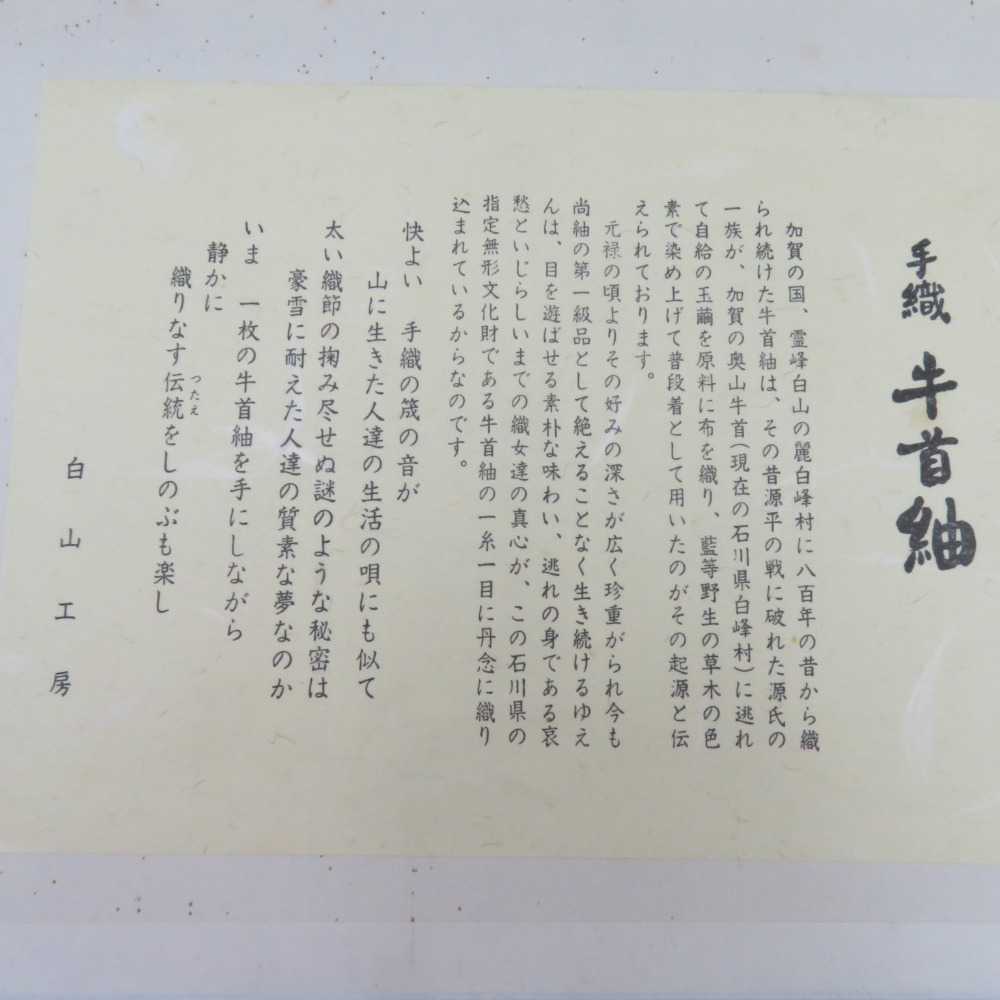 手織 牛首紬
加賀の国、霊峰白山の麓白峰村に八百年の昔から織
られ続けた牛首紬は、その昔源平の戦に破れた源氏の
一族が、加賀の奥山牛首(現在の石川県白峰村)に逃れ
て自給の玉繭を原料に布を織り、藍等野生の草木の色
素で染め上げて普段着として用いたのがその起源と伝
えられております。
元禄の頃よりその好みの深さが広く珍重がられ今も
尚紬の第一級品として絶えることなく生き続けるゆえ
んは、目を遊ばせる素朴な味わい、逃れの身である哀
愁といじらしいまでの織女達の真心が、この石川県の
指定無形文化財である牛首紬の一糸一目に丹念に織り
込まれているからなのです。
快よい 手織の筬の音が
山に生きた人達の生活の唄にも似て
太い織節の掬み尽せぬ謎のような秘密は
豪雪に耐えた人達の質素な夢なのか
いま 一枚の牛首紬を手にしながら
静かに
織りなす伝統をしのぶも楽し
つたえ
白山工房